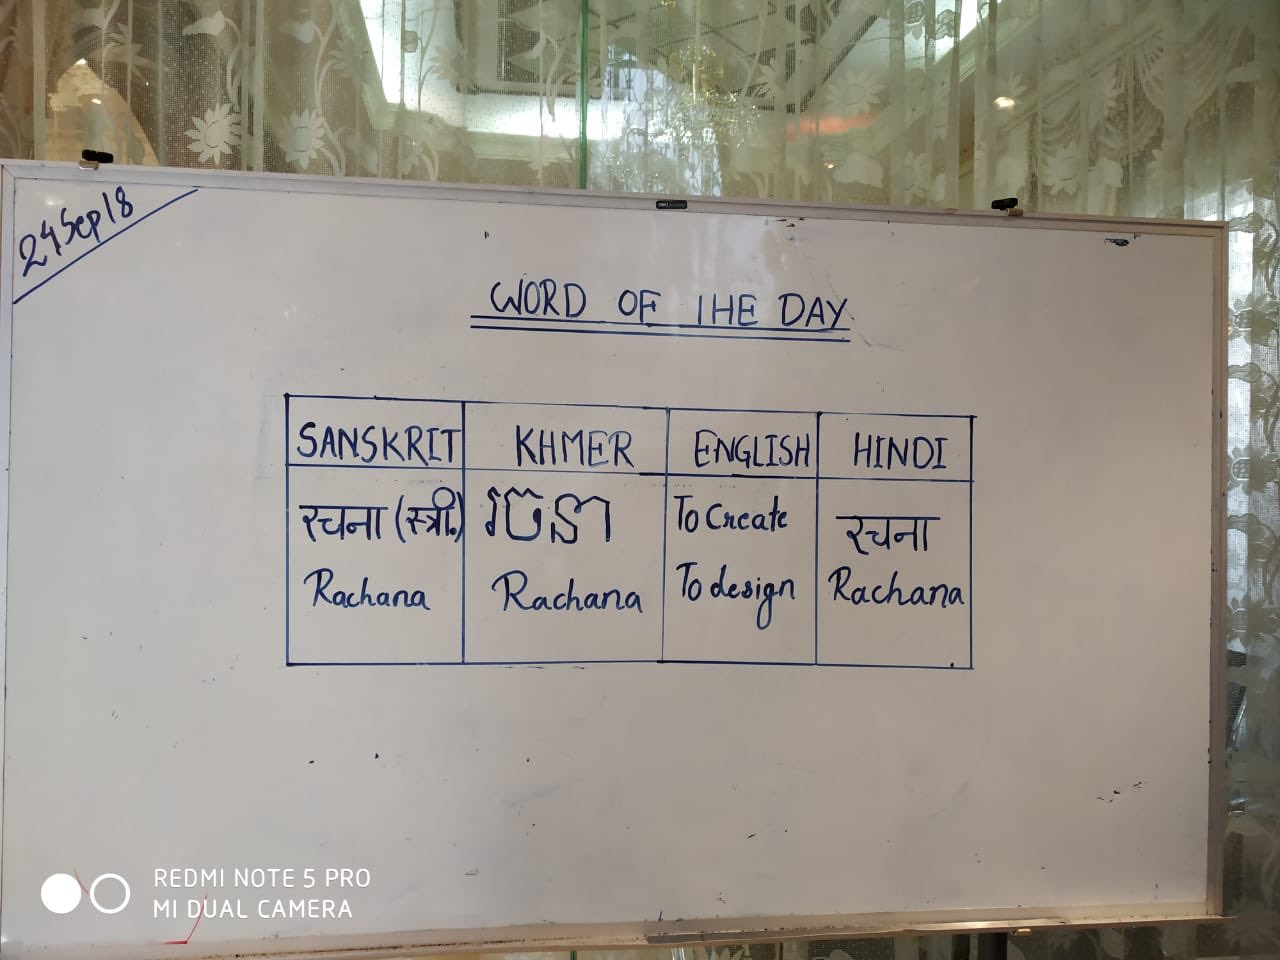 24 Sep 18
WORD OF THE DAY
SANSKRIT KHMER ENGLISH HINDI
रचना (स्त्री.) រចនា To Create रचना
Rachana Rachana To design Rachana
REDMI NOTE 5 PRO
MI DUAL CAMERA